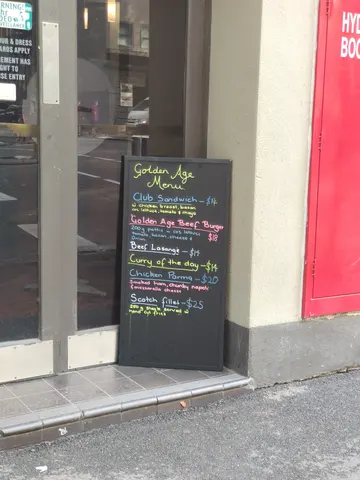 RNING:
& DRESS
ARDS APPLY
EMENT HAS
GHT TO
SE ENTRY
HY
BOO
Golden Age
Menu
Club Sandwich - $14
w chicken breast, bacon
cos lettuce, tomato & mayo
Golden Age Beef Burger
200g pattie w cos lettuce
tomato, bacon, cheese &
$18
Beef Lasange - $14
Curry of the day - $14
Chicken Parma - $20
Smoked ham, chunky napoli
& mozzarella cheese
Scotch fillet - $25
250 g steak served w
hand cut fries